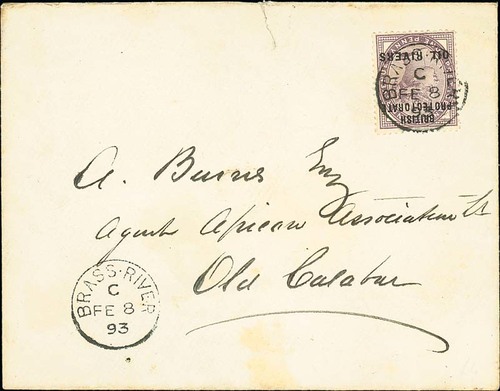 OIL RIVERS
BRITISH
PROTECTORATE
BRASS·RIVER
C
FE 8
93
A. Burns Esq
Agent African Association Ld
Old Calabar
BRASS·RIVER
C
FE 8
93